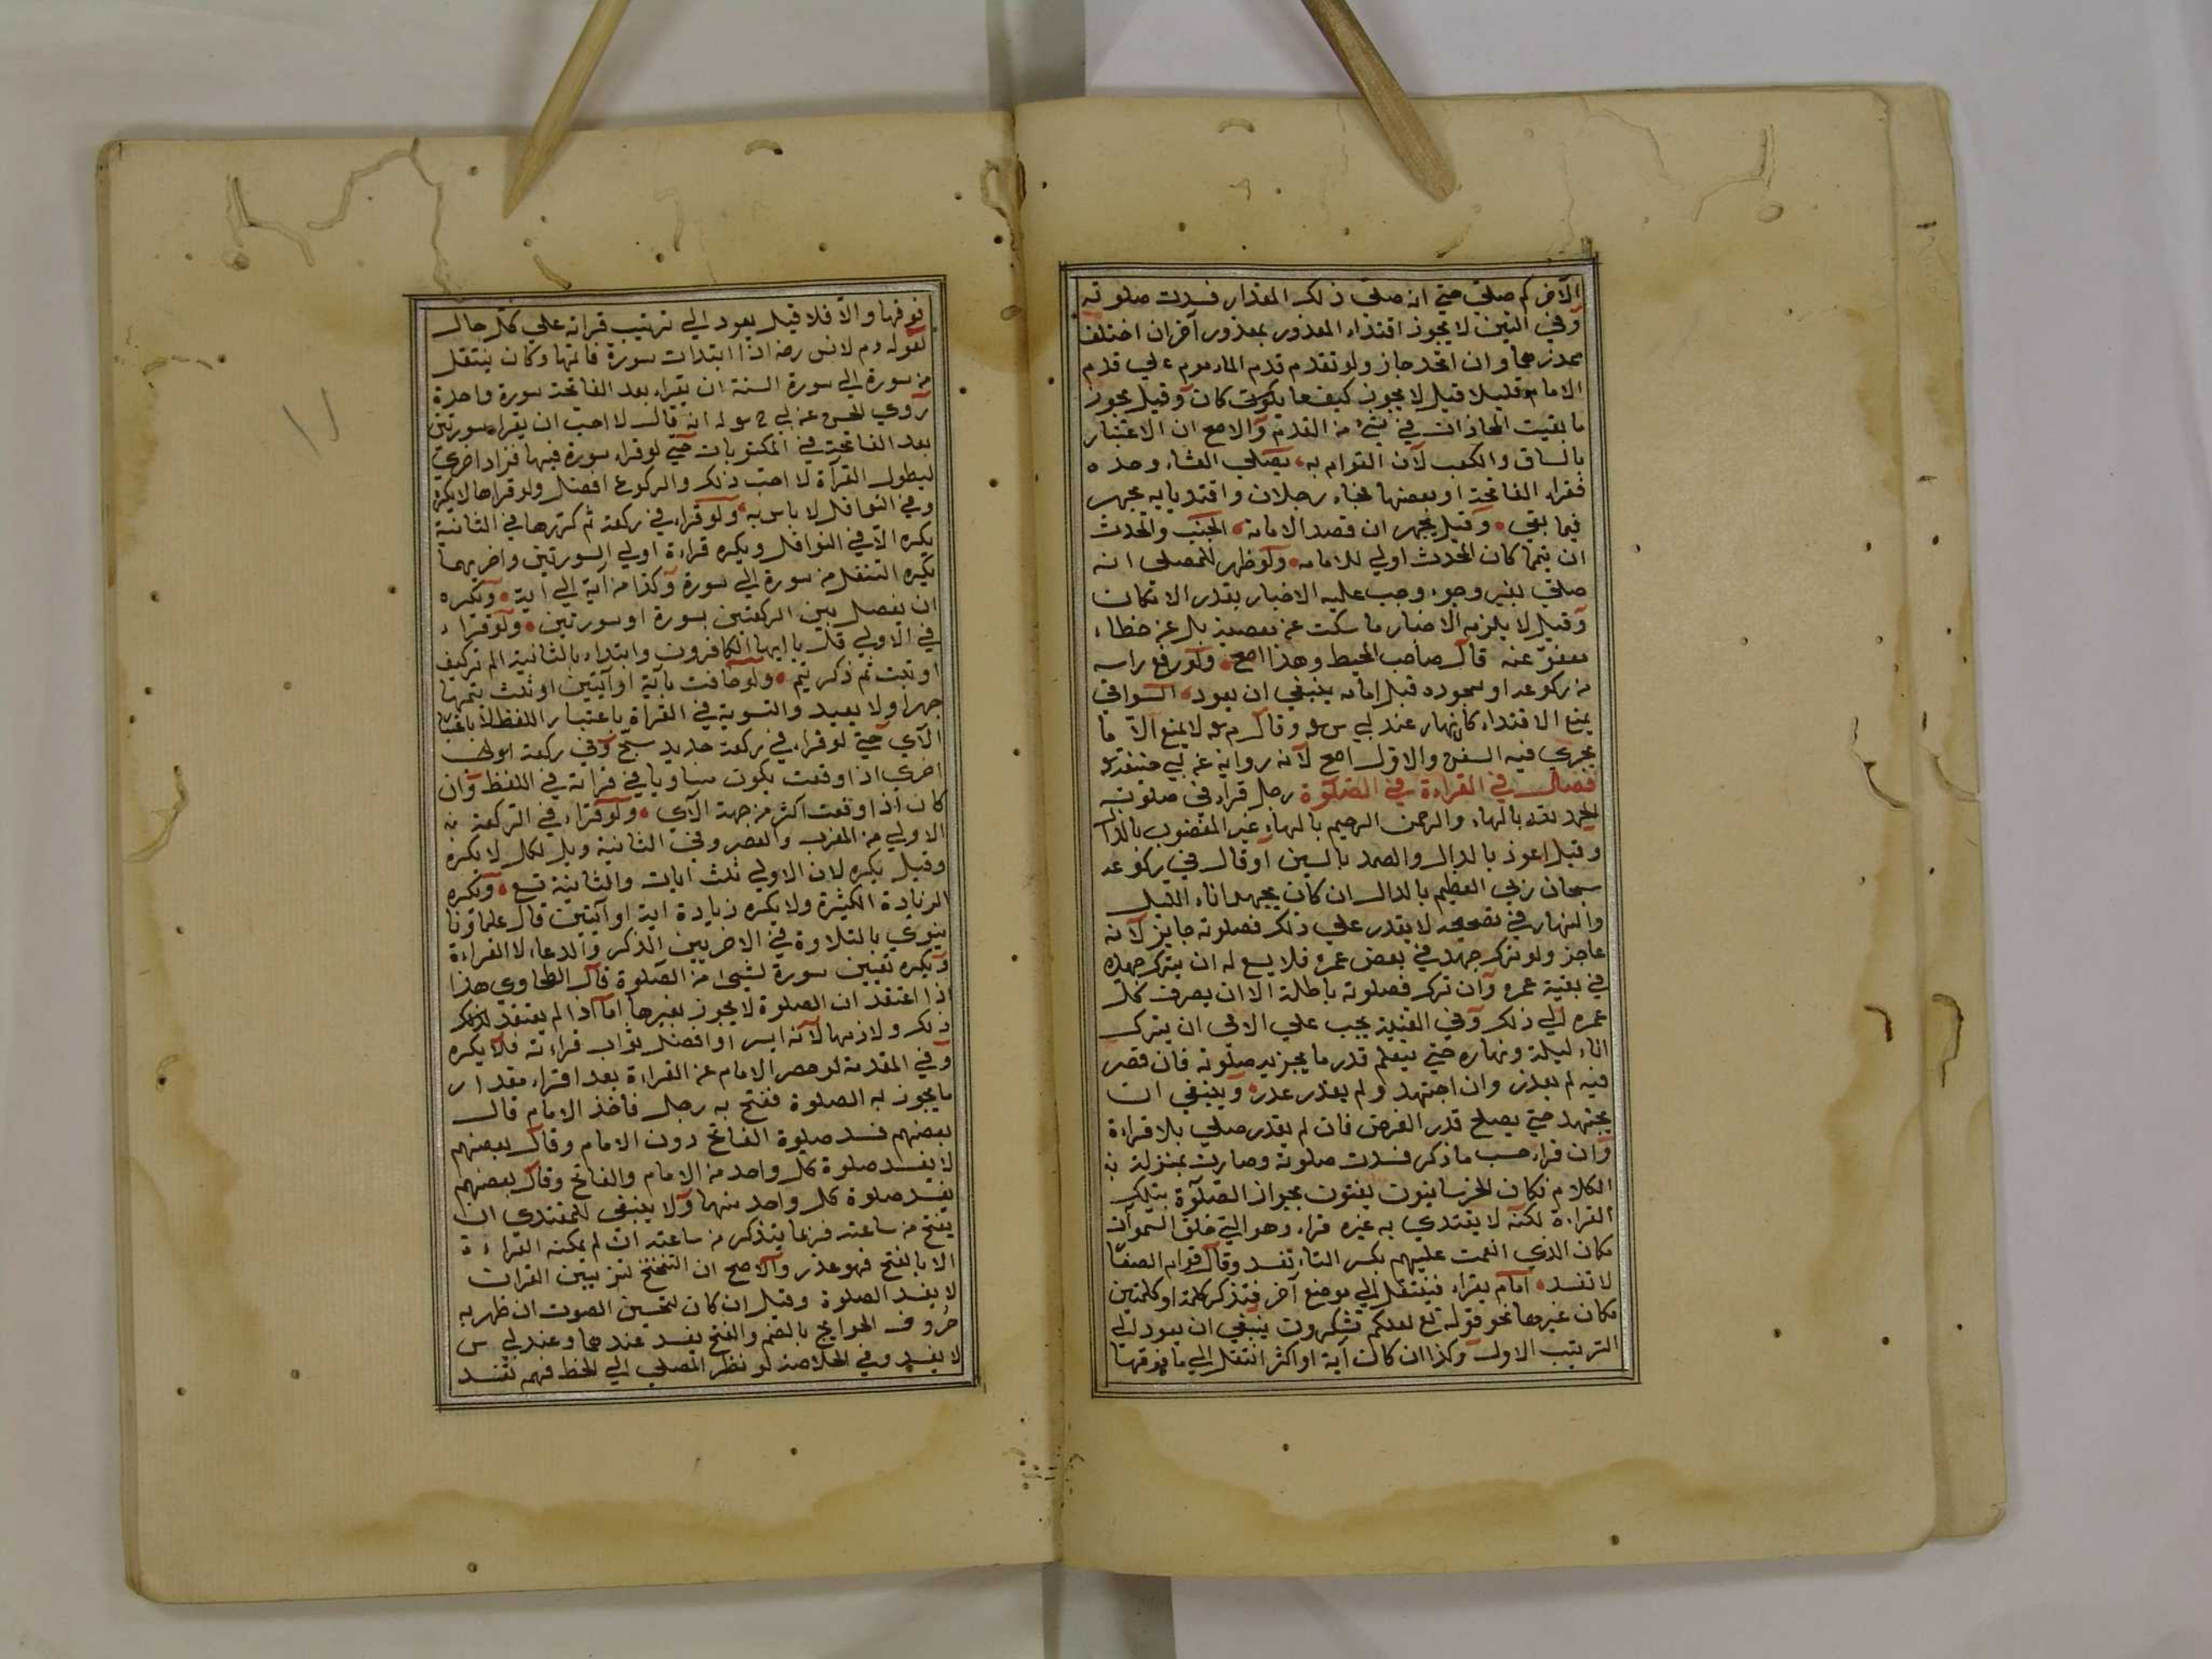 الآخر كم صلى حتى ان صلى ذلك المقدار فسدت صلوته
وفي اليتين لا يجوز اقتداء المعذور بمعذور آخر ان اختلف
عذرهما وان اتحد جاز ولو تقدم قدم الماموم على قدم
الامام قليلا قيل لا يجوز كيف ما يكون كان وقيل يجوز
ما بقيت المحاذات في شئ من القدم والاصح ان الاعتبار
بالساق والكعب لان القوام به يصلى العشاء وحده
فقراء الفاتحة او بعضها فجاء رجلان واقتديا به يجهر
فيما بقى وقيل يجهر ان قصد الامامة الجنب والمحدث
ان تيمما كان المحدث اولي للامامه ولو ظهر للمصلى انه
صلى بغير وجوء وجب عليه الاخبار بقدر الامكان
وقيل لا يلزمه الاخبار ما سكت عن معصية بل عن خطاء
معفوّ عنه قال صاحب المحيط وهذا اصح ولو رفع راسه
من ركوعه او سجوده قبل امامه ينبغي ان يعود السواقي
يمنع الاقتداء كانهار عند ابي س وقال م لا يمنع الا ما
يجري فيه السفن والاول اصح لانه رواية عن ابي حنيفة
فصل في القراءة في الصلوة رجل قراء في صلوته
الحمد لله بالهاء والرحمن الرحيم بالهاء غير المغضوب بالذال
وقيل اعوذ بالدال والصمد بالسين او قال في ركوعه
سبحان ربي العظيم بالدال ان كان يجهد اناء الليل
والنهار في تصحيحه لا يقدر علي ذلك فصلوته جايز لانه
عاجز ولو ترك جهده في بعض عمره فلا يسع له ان يترك جهده
في بقية عمره وان ترك فصلوته باطلة الا ان يصرف كل
عمره الي ذلك وفي القنية يجب علي الامى ان يترك
اناء ليله ونهاره حتي يتعلم قدر ما يجزيه صلوته فان قصر
فيه لم يعذر وان اجتهد ولم يقدر عدر وينبغي ان
يجتهد حتي يصلح قدر الفرض فان لم يقدر صلي بلا قراءة
وان قراء حسب ما ذكر فسدت صلوته وصارت بمنزلة
الكلام فكان يفتون بجواز الصلوة بتلك
القراءة لكنه لا يقتدي به غيره قراء وهو التي خلق السموات
مكان الذي انعمت عليهم بكسر التاء تفسد وقال قوام الصفا
لا تفسد امام يقراء فينتقل الي موضع آخر فتذكر كلمة او كلمتين
مكان غيرهما نحو قوله تع لعلكم تشكرون ينبغي ان يعود الي
الترتيب الاول وكذا ان كان آية او اكثر انتقل الي ما فوقها
فوقها والا فلا قيل يعود الي ترتيب قراته علي كل حال
لقوله م لانس رضه اذا ابتدات سورة فاتمها وكان ينتقل
من سورة الي سورة السنة ان يقراء بعد الفاتحة سورة واحدة
روي الحسن عن ابي ح انه قال لا احب ان يقراء سورتين
بعد الفاتحة في المكتوبات حتي لو قراء سورة فيها فزاد اخري
ليطول القرآة لا احب ذلك والركوع افضل ولو قراها لا يكره
وفي النوافل لا باس به ولو قراء في ركعة ثم كررها في الثانية
يكره الا في النوافل ويكره قراءة اولي السورتين واخريهما
يكره التنقل من سورة الي سورة وكذا من آية الي اية ويكره
ان يفصل بين الركعتين بسورة او سورتين ولو قراء
في الاولي قل يا ايها الكافرون وابتداء بالثانية الم تركيف
او تبت ثم ذكر يتم ولو خافت باية او آيتين او ثلث يتمها
جهرا ولا يعيد والتسوية في القراة باعتبار اللفظ لا باعتبار
الآي حتي لو قراء في ركعة
اخري اذا وقعت يكون مساويا في قراته في اللفظ وان
كان اذا وقعت اكثر من جهة الآي ولو قراء في الركعة
الاولي من المغرب والعصر وفي الثانية ويل لكل لا يكره
وقيل يكره لان الاولي ثلث ايات والثانية تسع ويكره
الزيادة الكثيرة ولا يكره زيادة اية او آيتين قال علماؤنا
ينوي بالتلاوة في الاخريين الذكر والدعاء لا القراءة
ويكره تعيين سورة لشئ من الصلوة قال الطحاوي هذا
اذا اعتقد ان الصلوة لا يجوز بغيرها اما اذا لم يعتقد
ذلك ولازمها لانه ايسر او افضل ثواب قراءته فلا يكره
وفي المقدمة لو حصر الامام عن القراءة بعد اقراء مقدار
ما يجوز به الصلوة ففتح به رجل فاخذ الامام قال
بعضهم فسد صلوة الفاتح دون الامام وقال بعضهم
لا يفسد صلوة كل واحد من الامام والفاتح وقال بعضهم
يفسد صلوة كل واحد منهما ولا ينبغي للمقتدي ان
يفتح من ساعته فربما يتذكر من ساعته ان لم يمكنه القراءة
الا بالفتح فهو عذر والاصح ان التنحنح تزيين القرات
لا يفسد الصلوة وقيل ان كان لتحسين الصوت ان ظهر به
حروف الحوايج بالضم والفتح يفسد عندهما وعند ابي س
لا يفسد وفي الخلاصة لو نظر المصلي الي الخط فهم تفسد